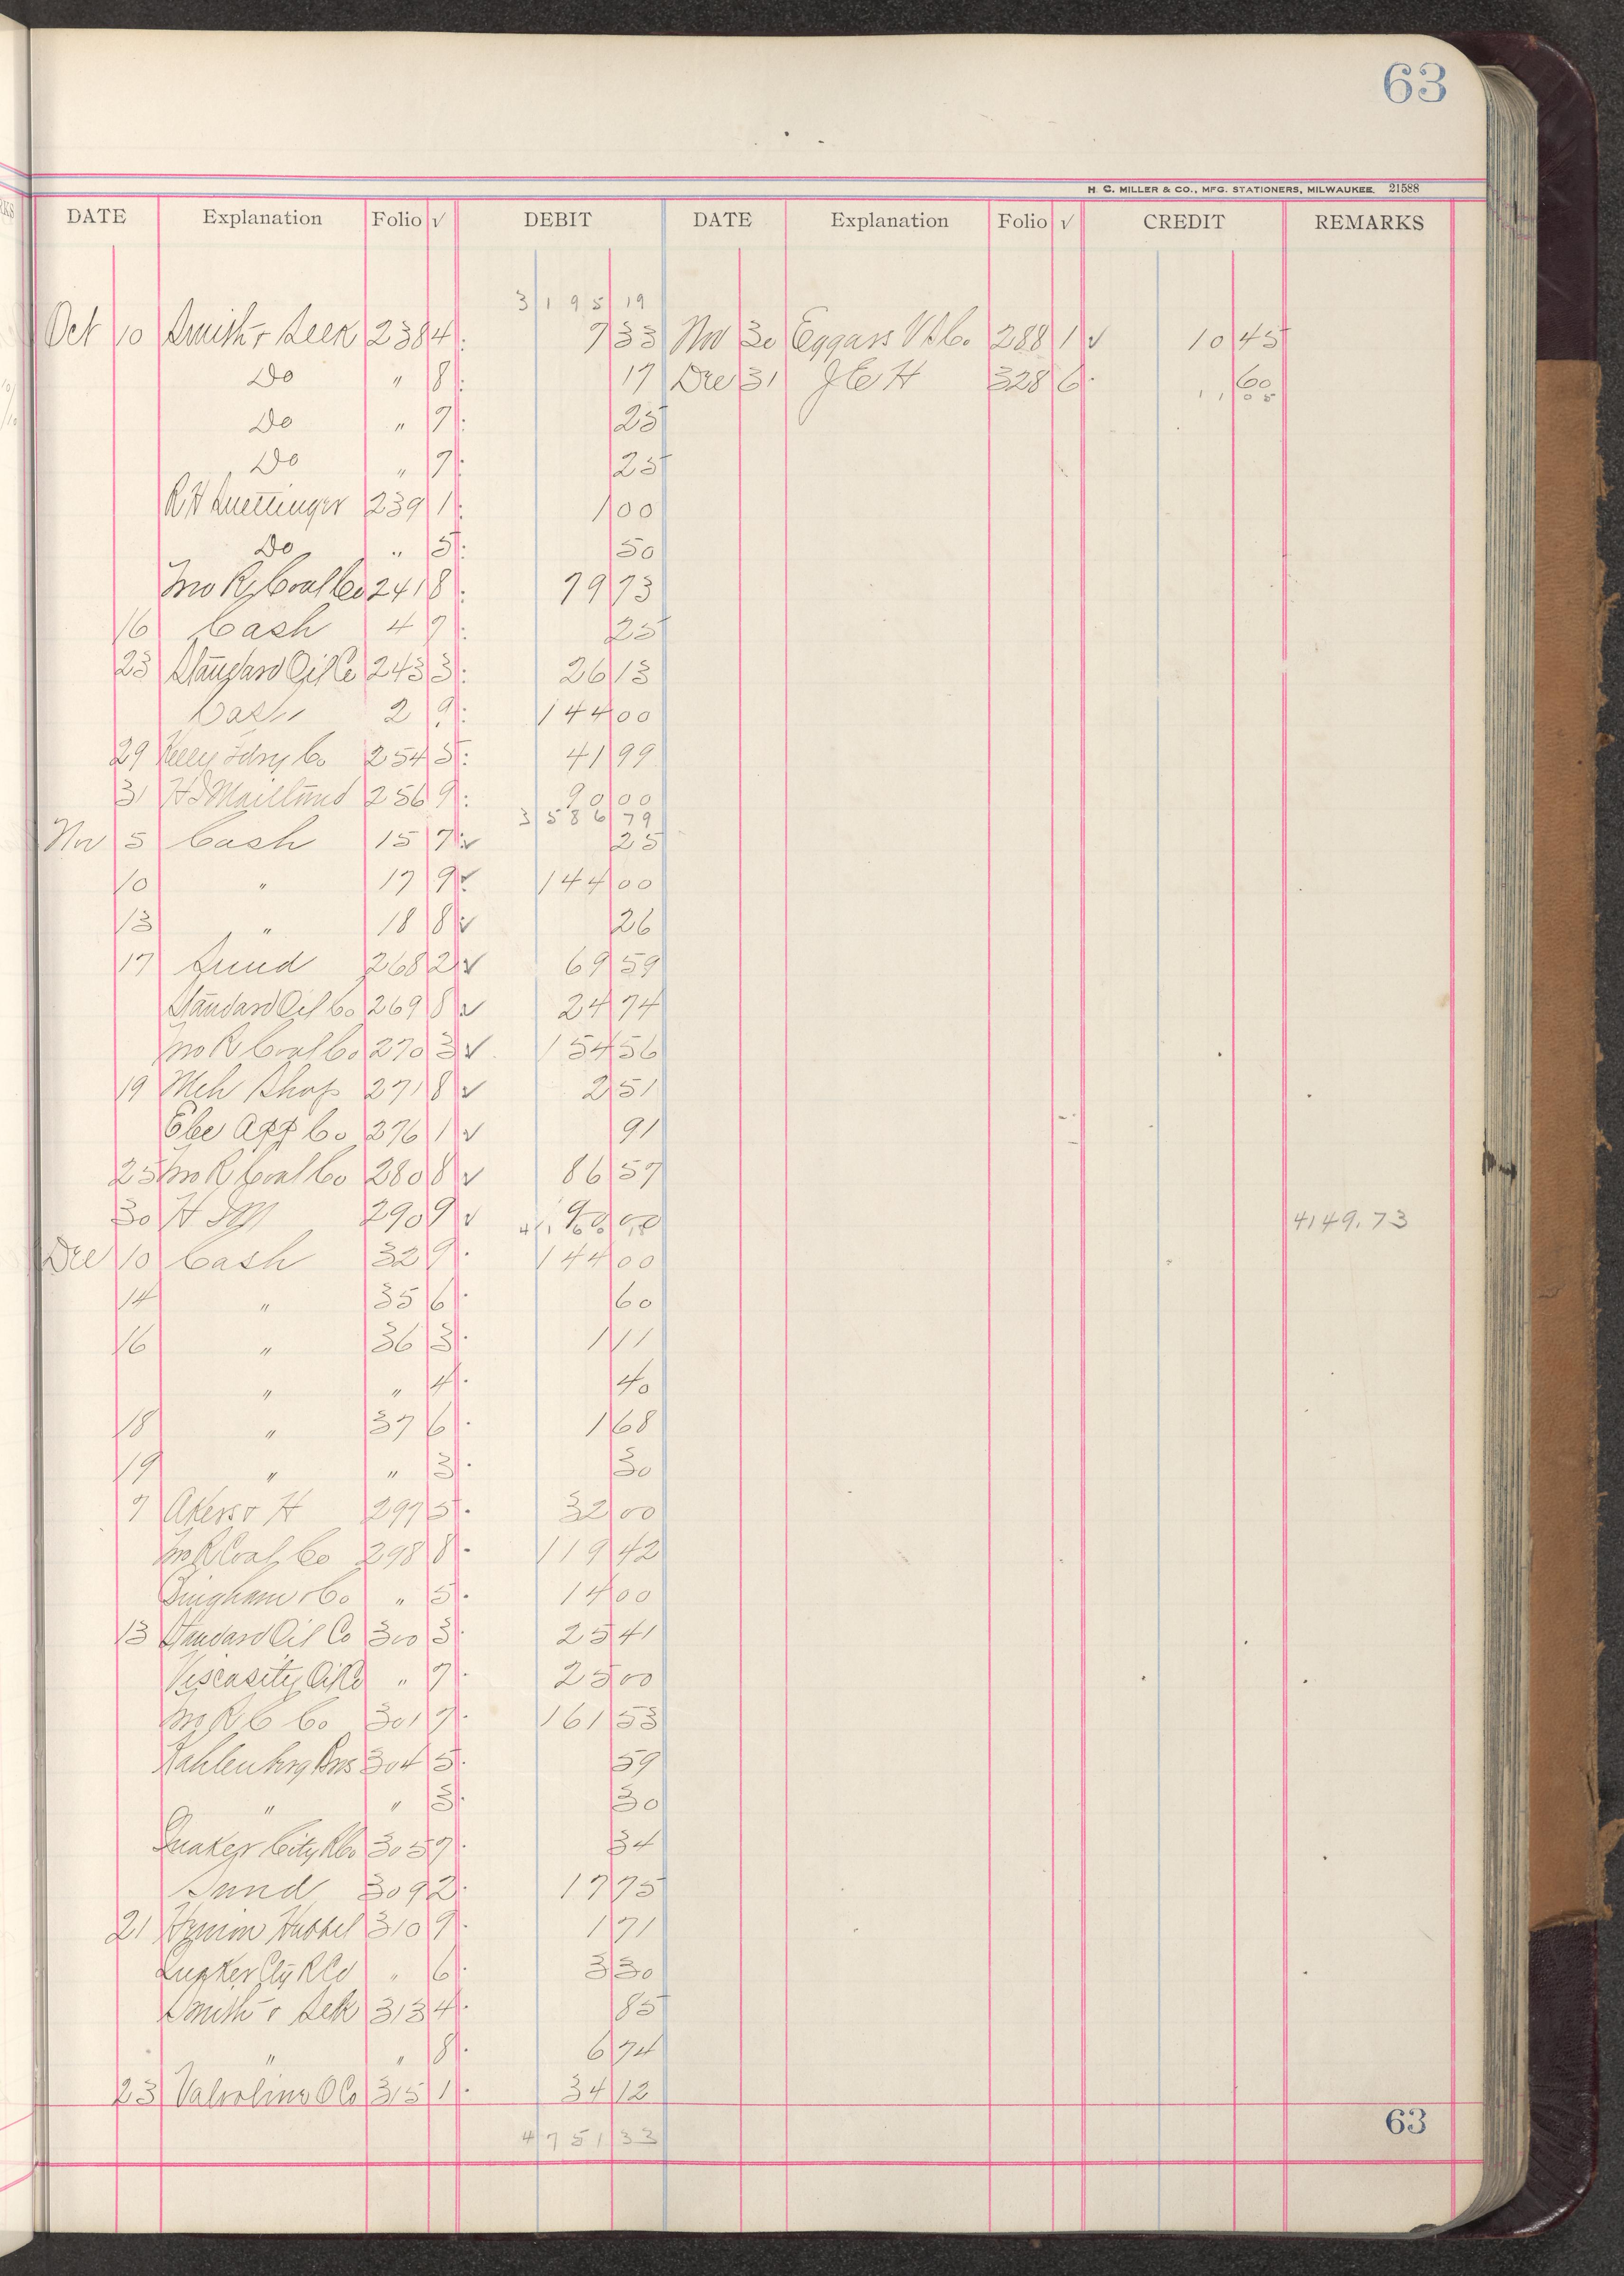 63
H. C. MILLER & CO., MFG. STATIONERS, MILWAUKEE. 21588
DATE Explanation Folio √ DEBIT DATE Explanation Folio √ CREDIT REMARKS
3 195 19
Oct 10 Smith & 238 4 7 33 Nov 30 Eggars V & Co. 288 1 √ 10 45
Do " 8 17 Dec 31 328 6 60
Do " 7 25
Do " 7 25
R W 239 1 1 00
Do " 5 50
Mo R Coal Co 241 8 79 73
16 Cash 4 7 25
23 Standard Oil Co 243 3 26 13
Cash 2 9 144 00
29 Co 254 5 41 99
31 H S Maillund 256 9 90 00
3 586 79
Nov 5 Cash 15 7 √ 25
10 " 17 9 √ 144 00
13 " 18 8 √ 26
17 Sund 268 2 √ 69 59
Standard Oil Co 269 8 √ 24 74
Mo R Coal Co 270 3 √ 154 56
19 Mch Shop 271 8 √ 2 51
Ele App Co 276 1 √ 91
25 Mo R Coal Co 280 8 √ 86 57
30 H S M 290 9 √ 90 00 4149.73
Dec 10 Cash 32 9 144 00
14 " 35 6 60
16 " 36 3 1 11
" " 4 40
18 " 37 6 1 68
19 " " 3 30
7 Akers & H 297 5 32 00
Mo R Coal Co 298 8 119 42
Bingham & Co " 5 14 00
13 Standard Oil Co 300 3 25 41
Viscosity Oil Co " 7 25 00
Mo R C Co 301 7 161 53
Kahlenberg Bros 304 5 59
" " 3 30
Quaker City R Co 305 7 34
Sund 309 2 17 75
21 Hynion Hubbel 310 9 1 71
Quaker City R Co " 6 3 30
Smith & 313 4 85
" " 8 6 74
23 Valvoline O Co 315 1 34 12
4 751 33
63